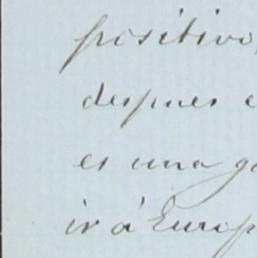 positivo,
despues
es una
ir á Europ